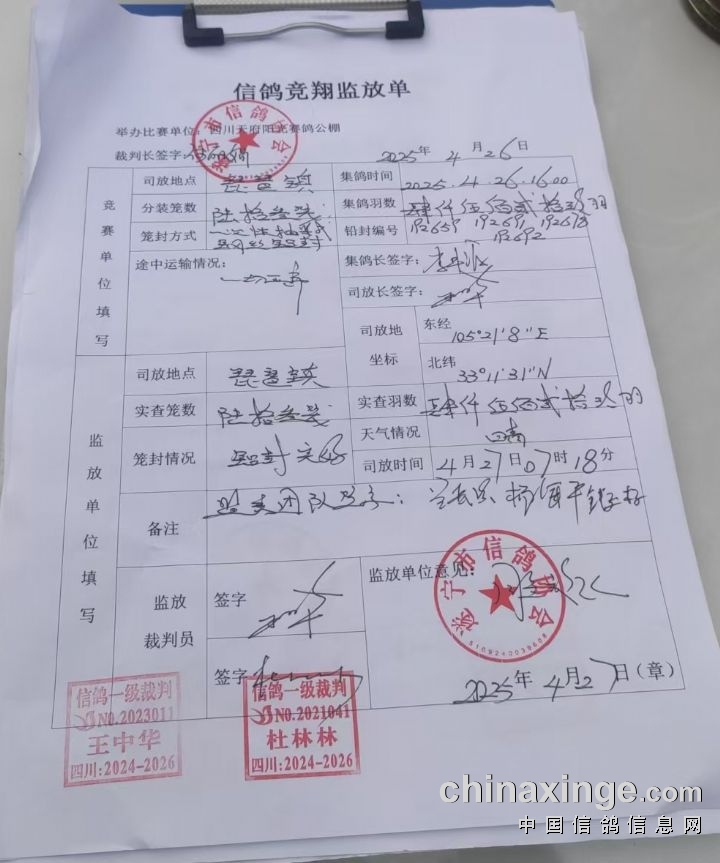 信鸽竞翔监放单
举办比赛单位：四川天府阳光赛鸽公棚
裁判长签字：
2025年 4 月 26日
竞赛单位填写
司放地点 琵琶镇 集鸽时间 2025.4.26.1600
分装笼数 陆拾叁笼 集鸽羽数 肆仟伍佰贰拾 羽
笼封方式 一次性 铅封编号 192659 192691 192698
192692
途中运输情况： 一切正常 集鸽长签字：
司放长签字：
司放地坐标 东经 105°21'8"E
北纬 33°11'31"N
监放单位填写
司放地点 琵琶镇
实查笼数 陆拾叁笼 实查羽数 肆仟伍佰贰拾 羽
笼封情况 铅封完好 天气情况 晴
司放时间 4月27日07时18分
备注
监放裁判员 签字
签字
监放单位意见：
2025年 4月27日（章）
遂宁市信鸽协会
遂宁市信鸽协会
5109240039608
信鸽一级裁判
NO.2023011
王中华
四川:2024-2026
信鸽一级裁判
NO.2021041
杜林林
四川:2024-2026
chinaxinge.com
中国信鸽信息网